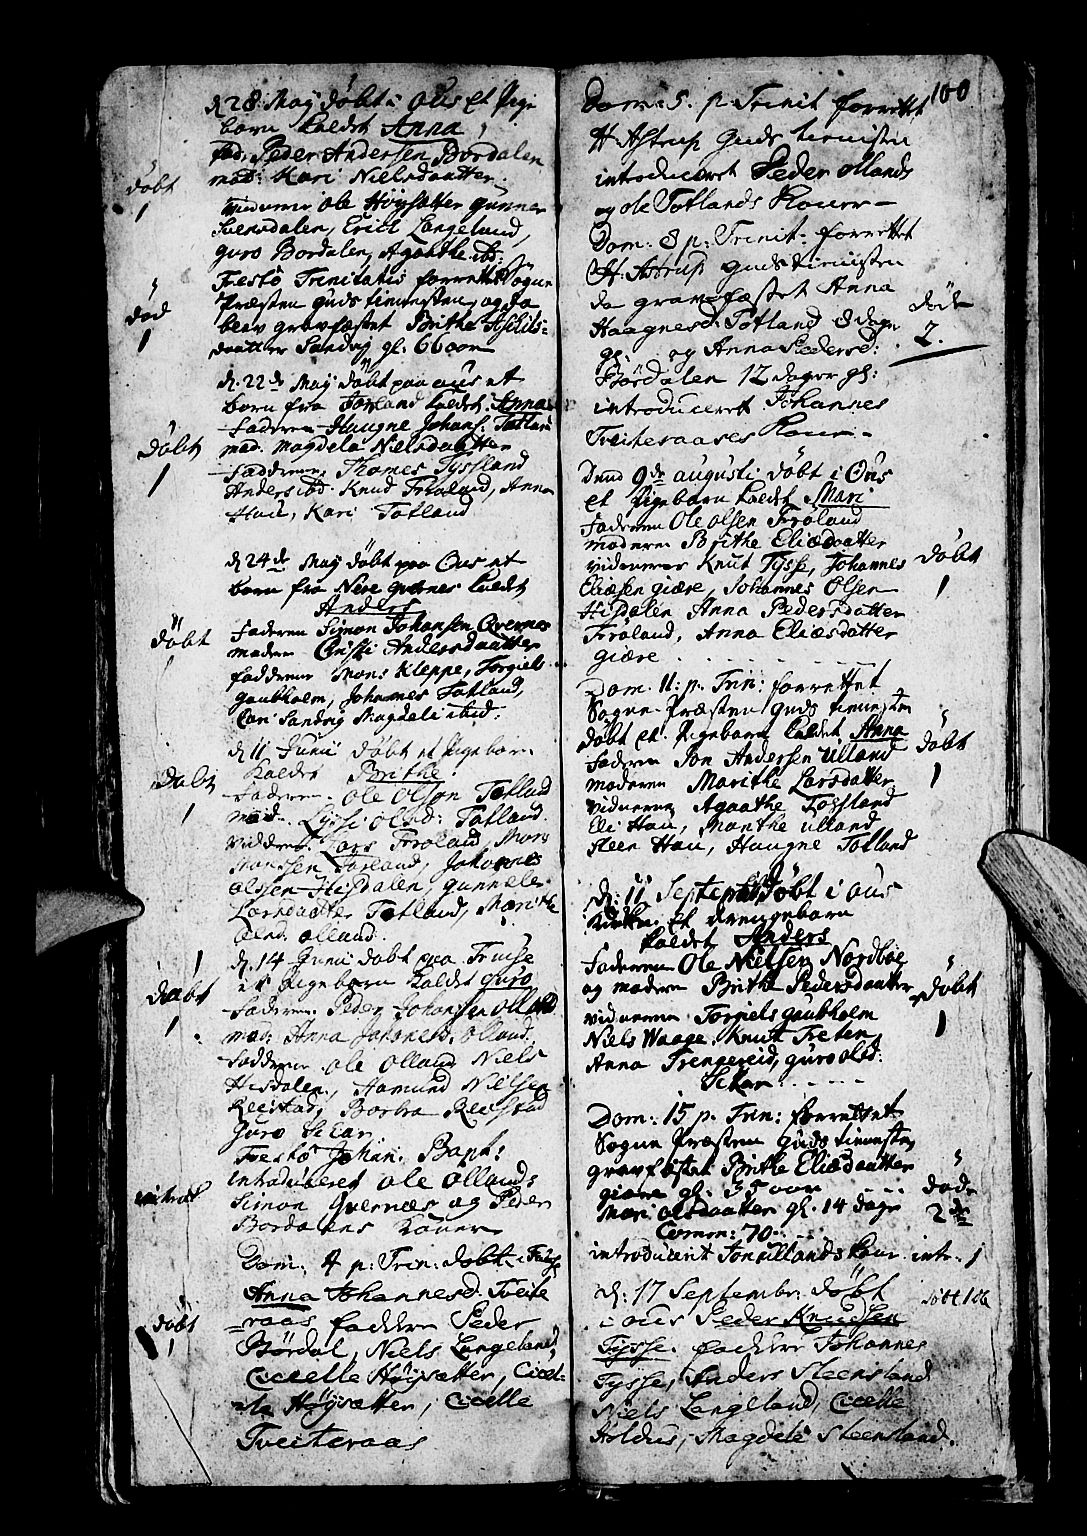 d. 28 Maÿ döbt i Ous et Pige
barn kaldet Anna,
fad: Peder Andersen Bordalen
mod: Kari Nielsdaatter
döbt
1
vidnerne ole Höysæter gunner
Svensdalen, Erich Langeland,
guro Bordalen, Agaathe ibd:
Festô Trinitatis forrettet Sogne
Præsten guds tienesten, og da
död
1
blev gravfæstet Brithe
daatter Sandvig gl. 66 aar
d. 22de Maÿ döbt paa ous et
barn fra Totland kaldet Anna
faderen Haugne Johans: Totland
döbt
1
mod. Magdela Nielsdaatter
Fadderne Thomes Tyssland
Anders ibd. Knud Fröland, Anna
Hau, Kari Totland
d. 24de Maÿ döbt paa Ous et
barn fra Nere qvernes kaldet
Anders
döbt
1
Faderen Simon Johansen Qvernes
moderen Christi Andersdaatter
fadderne Mons Kleppe, Torgiels
gaubholm, Johannes Totland,
Cari Sandvig Magdeli ibid:
d. 11 Junii döbt et Pigebarn
kaldet Brithe.
döbt
1
Faderen. Ole Olson Totland
mod. Lyssi olsd: Totland.
viddern. Lars Fröland, Mons
Monssen Totland, Johannes
olssen Hisdalen, gunnele
Larsdaatter Totland, Marithe
olsd. olland.
d. 14 Junii döbt paa Fuuse
et Pigebarn kaldet guro
döbt
1
Faderen. Peder Johansen olland
mod: Anna Johannesd. olland.
fadderne ole olland Niels
Hisdalen, Aamund Nielsen
Reistad, Barbra Revstad
Guro Skaar
Festô Johan: Bapt:
introduceret ole ollands
introd
Simon Qvernæs og Peder
Bordalens Koner
Dom. 4 p: Trin: döbt i Fuse
Anna Johannesd. Tveite
raas faddere Peder
döbt
1
Bördal, Niels Langeland,
Cicelle Höysæter, Cicel-
le Höysæter, Cicelle
Tveiteraas
100
Dom: 5. p. Trinit forrettet
H. Astrup Guds tienisten
introduceret Peder ollands
og ole Totlands Koner —
Dom: 8 p: Trinit: forrettet
H: Astrup guds tienisten
da gravfæstet Anna
döde
2.
Haagnesd: Totland 8 dage
gl. og Anna Pedersd:
Bördalen 12 dager gl:
introduceret Johannes
Tveiteraases Kone —
Dend 9de augusti döbt i Ous
et Pigebarn kaldet Mari
Faderen Ole olsen Fröland
moderen Brithe Eliædaatter
döbt
1
vidnerne Knut Tysse, Johannes
Eliæsen giære, Johannes Olsen
Hisdalen Anna Pedersdatter
Fröland, Anna Eliæsdatter
giære
Dom. 11: p: Trin: forrettet
Sogne-Præsten guds tienesten
döbt et Pigebarn kaldet Anna
döbt
1
Faderen Jon Andersen Ulland
moderen Marithe Larsdatter
vidnerne Agaathe Tyssland
Eli Hau, Marthe ulland
steen Hau, Haugne Totland
d: 11 Septembr döbt i ous
et drengebarn
kaldet Anders
Faderen Ole Nielsen Nordboe
og moderen Brithe Pedersdaatter
döbt
1
vidnerne Torgiels gaubholm
Niels Waage, Knut Treten,
Anna Trengereid, guro olsd:
Skaar
Dom: 15 p. Trin: forrettet
Sogne Præsten guds tieneste,
gravfæstet Brithe Eliædaatter
giære gl: 35 aar
döde
2de
Mari olsdaatter gl. 14 dage
Comm: 70
introducert Jon ullands kone. intr. 1
d. 17 September döbt
i ous Peder Knudsen
döbt 1
Tysse. faddere Johannes
Tysse, Anders Steensland
Niels Langeland, Cicelle
Holdus, Magdele Steensland.